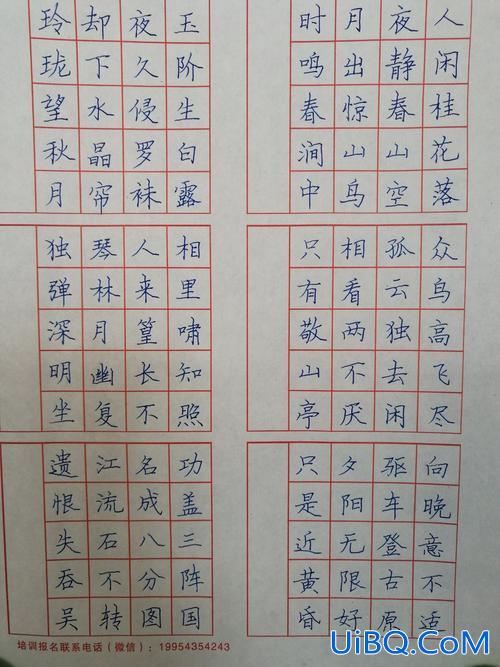 人闲桂花落
夜静春山空
月出惊山鸟
时鸣春涧中
玉阶生白露
夜久侵罗袜
却下水晶帘
玲珑望秋月
众鸟高飞尽
孤云独去闲
相看两不厌
只有敬山亭
相里啸知照
人来篁长不
琴林月幽复
独弹深明坐
向晚意不适
驱车登古原
夕阳无限好
只是近黄昏
功盖三阵国
名成八分图
江流石不转
遗恨失吞吴
培训报名联系电话（微信）：19954354243
UiBQ.CoM